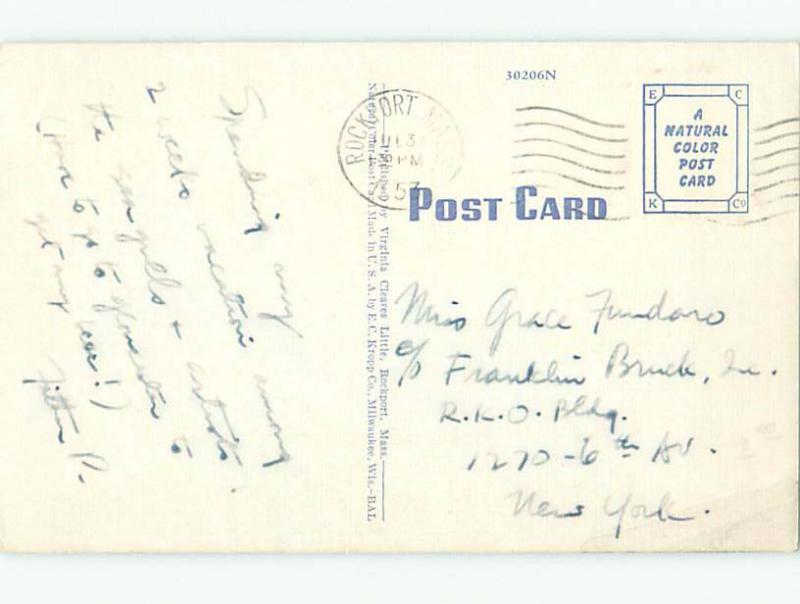 30206N
ROCKPORT MASS
8 PM
POST CARD
E C
A
NATURAL
COLOR
POST
CARD
K Co
Spending my
2 weeks vacation among
the sea gulls + artists.
(Have to go to Gloucester to
get any beer!)
P.
Published by Virginia Cleaves Little, Rockport, Mass.
Natural Color Post Card Made in U. S. A. by E. C. Kropp Co., Milwaukee, Wis.-BAL
Miss Grace Fundaro
c/o Franklin Bruck, Inc.
R.K.O. Bldg.
1270-6th Av.
New York.